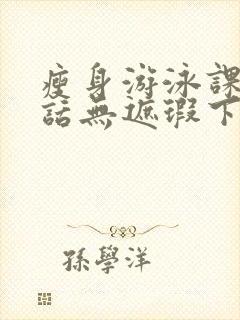 瘦身游泳課
話無遮瑕下
孫學洋